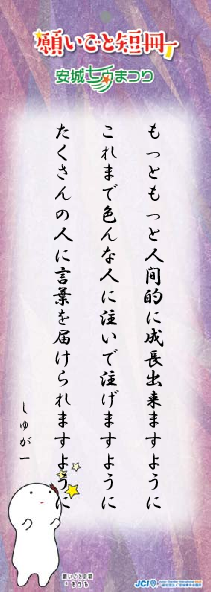 願いごと短冊
安城七夕まつり
もっともっと人間的に成長出来ますように
これまで色んな人に注いで注げますように
たくさんの人に言葉を届けられますように
しゅがー
願いごと短冊
JCI